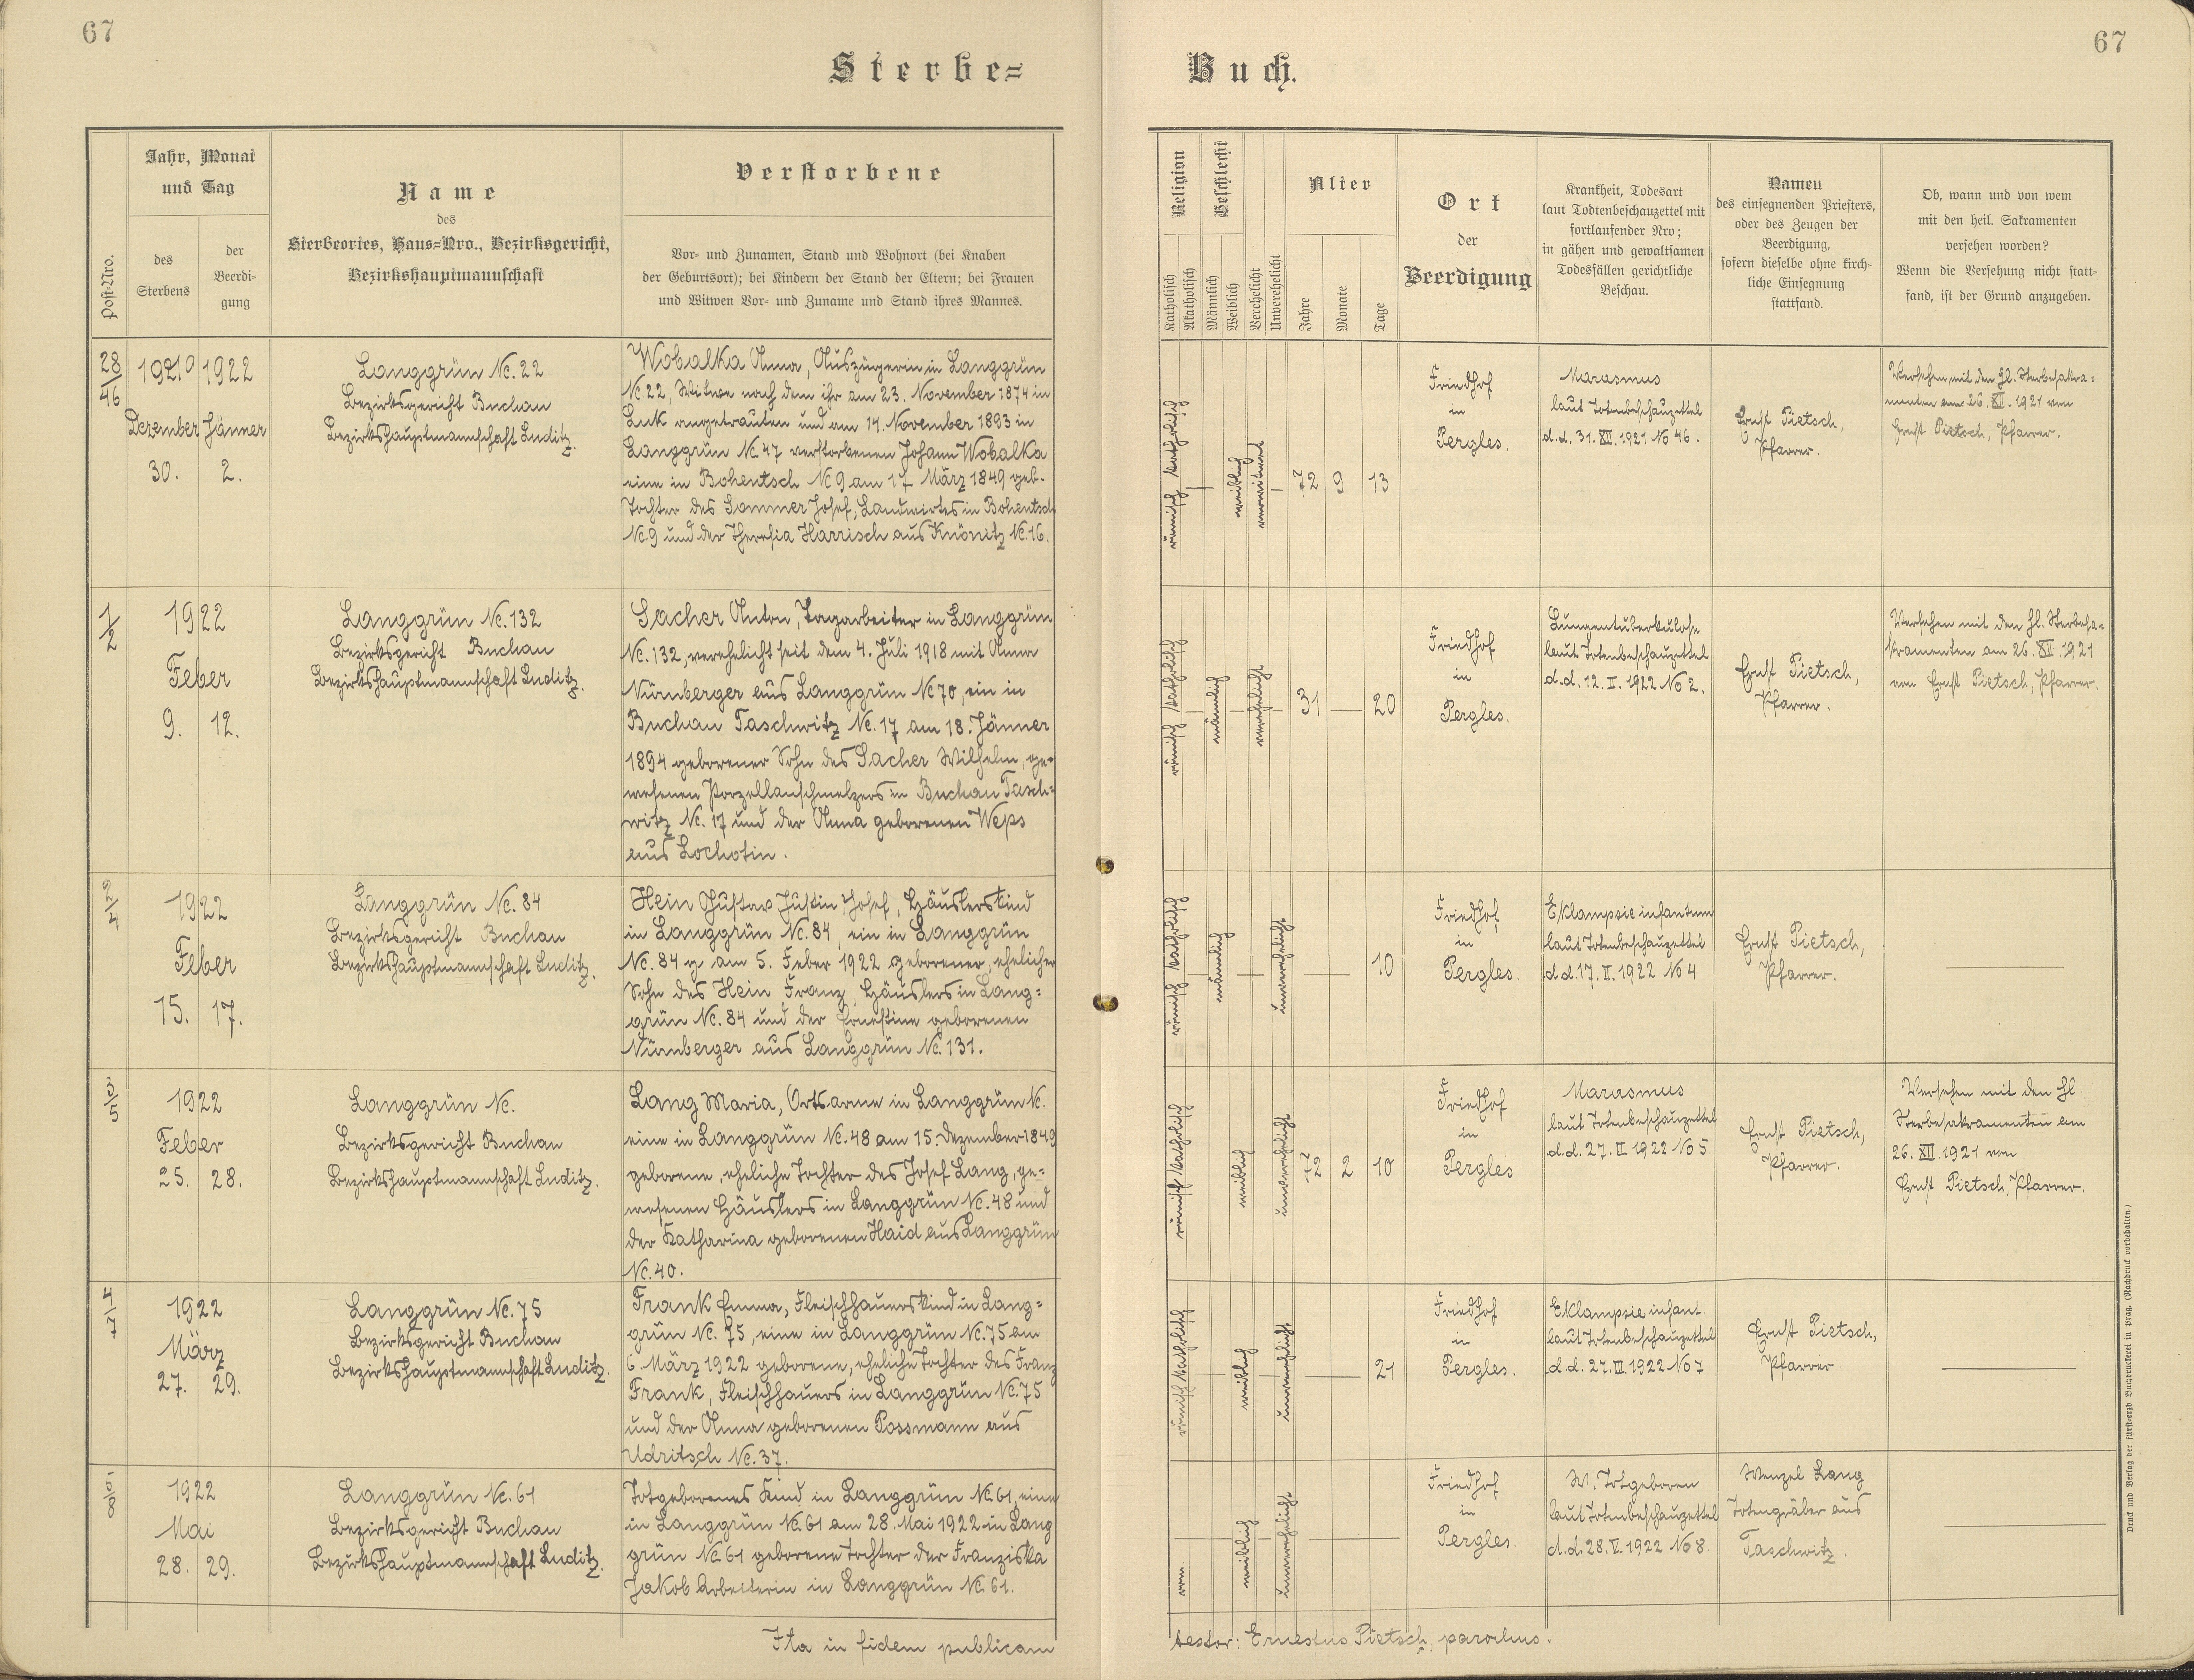 67
67
Sterbe=
Buch.
Post-Nro.
Jahr, Monat
und Tag
des
Sterbens
der
Beerdi-
gung
Name
des
Sterbeortes, Haus=Nro., Bezirksgericht,
Bezirkshauptmannschaft
Verstorbene
Vor- und Zunamen, Stand und Wohnort (bei Knaben
der Geburtsort); bei Kindern der Stand der Eltern; bei Frauen
und Witwen Vor- und Zuname und Stand ihres Mannes.
Religion
Katholisch
Akatholisch
Geschlecht
Männlich
Weiblich
Verehelicht
Unverehelicht
Alter
Jahre
Monate
Tage
Ort
der
Beerdigung
Krankheit, Todesart
laut Todtenbeschauzettel mit
fortlaufender Nro;
in gähen und gewaltsamen
Todesfällen gerichtliche
Beschau.
Namen
des einsegnenden Priesters,
oder des Zeugen der
Beerdigung,
sofern dieselbe ohne kirch-
liche Einsegnung
stattfand.
Ob, wann und von wem
mit den heil. Sakramenten
versehen worden?
Wenn die Versehung nicht statt-
fand, ist der Grund anzugeben.
28/46
1921 1922
Dezember Jänner
30. 2.
Langgrün Nc. 22
Bezirksgericht Buchau
Bezirkshauptmannschaft Luditz.
Wobalka Anna, Auszüglerin in Langgrün
Nc. 22, Witwe nach dem ihr am 23. November 1874 in
Luk angetrauten und am 14. November 1893 in
Langgrün Nc. 47 verstorbenen Johann Wobalka
eine in Bohentsch Nc 9 am 17 März 1849 geb.
Tochter des Sommer Josef, Landwirtes in Bohentsch
Nc. 9 und der Theresia Harrisch aus Knönitz Nc. 16.
römisch katholisch
weiblich
verwitwet
72 9 13
Friedhof
in
Pergles.
Marasmus
laut Totenbeschauzettel
d.d. 31. XII. 1921 No 46.
Ernst Pietsch,
Pfarrer.
Versehen mit den hl. Sterbesakra=
menten am 26. XII. 1921 von
Ernst Pietsch, Pfarrer.
1/2
1922
Feber
9. 12.
Langgrün Nc. 132
Bezirksgericht Buchau
Bezirkshauptmannschaft Luditz.
Sacher Anton, Tagarbeiter in Langgrün
Nc. 132, verehelicht seit dem 4. Juli 1918 mit Anna
Nürnberger aus Langgrün Nc 70, ein in
Buchau Taschwitz Nc. 17 am 18. Jänner
1894 geborener Sohn des Sacher Wilhelm, ge=
wesenen Porzellanschmelzers in Buchau Tasch=
witz Nc. 17 und der Anna geborenen Weps
aus Lochotin.
römisch katholisch
männlich
verehelicht
31 — 20
Friedhof
in
Pergles.
Lungentuberkulose
laut Totenbeschauzettel
d.d. 12. II. 1922 No 2.
Ernst Pietsch,
Pfarrer.
Versehen mit den hl. Sterbesa=
kramenten am 26. XII. 1921
von Ernst Pietsch, Pfarrer.
2/4
1922
Feber
15. 17.
Langgrün Nc. 84
Bezirksgericht Buchau
Bezirkshauptmannschaft Luditz.
Hein Gustav Justin Josef, Häuslerskind
in Langgrün Nc. 84, ein in Langgrün
Nc. 84 am 5. Feber 1922 geborener, ehelicher
Sohn des Hein Franz, Häuslers in Lang=
grün Nc. 84 und der Ernestine geborenen
Nürnberger aus Langgrün Nc. 131.
römisch katholisch
männlich
unverehelicht
10
Friedhof
in
Pergles.
Eklampsie infantum
laut Totenbeschauzettel
d.d 17. II. 1922 No 4
Ernst Pietsch,
Pfarrer.
3/5
1922
Feber
25. 28.
Langgrün Nc.
Bezirksgericht Buchau
Bezirkshauptmannschaft Luditz.
Lang Maria, Ortsarme in Langgrün Nc.
eine in Langgrün Nc. 48 am 15. Dezember 1849
geborene, eheliche Tochter des Josef Lang, ge=
wesenen Häuslers in Langgrün Nc. 48 und
der Katharina geborenen Haid aus Langgrün
Nc. 40.
römisch katholisch
weiblich
unverehelicht
72 2 10
Friedhof
in
Pergles
Marasmus
laut Totenbeschauzettel
d.d. 27. II. 1922 No 5.
Ernst Pietsch,
Pfarrer.
Versehen mit den hl.
Sterbesakramenten am
26. XII. 1921 von
Ernst Pietsch, Pfarrer.
4/7
1922
März
27. 29.
Langgrün Nc. 75
Bezirksgericht Buchau
Bezirkshauptmannschaft Luditz.
Frank Emma, Fleischhauerskind in Lang=
grün Nc. 75, eine in Langgrün Nc. 75 am
6. März 1922 geborene, eheliche Tochter des Franz
Frank, Fleischhauers in Langgrün Nc. 75
und der Anna geborenen Possmann aus
Udritsch Nc. 37.
römisch katholisch
weiblich
unverehelicht
21
Friedhof
in
Pergles.
Eklampsie infant.
laut Totenbeschauzettel
d.d. 27. III. 1922 No 7
Ernst Pietsch,
Pfarrer.
5/8
1922
Mai
28. 29.
Langgrün Nc. 61
Bezirksgericht Buchau
Bezirkshauptmannschaft Luditz.
Totgeborenes Kind in Langgrün Nc. 61, eine
in Langgrün Nc. 61 am 28. Mai 1922 in Lang
grün Nc. 61 geborene Tochter der Franziska
Jakob Arbeiterin in Langgrün Nc. 61.
weiblich
unverehelicht
Friedhof
in
Pergles.
W. Totgeboren
laut Totenbeschauzettel
d.d. 28. V. 1922 No 8.
Wenzel Lang
Totengräber aus
Taschwitz.
Ita in fidem publicam
testor: Ernestus Pietsch, parochus.
Druck und Verlag der fürst-erzb Buchdruckerei in Prag. (Nachdruck vorbehalten.)